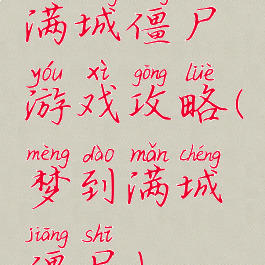 满城僵尸
yóu xì gōng lüè
游戏攻略(
mèng dào mǎn chéng
梦到满城
jiāng shī
僵尸)